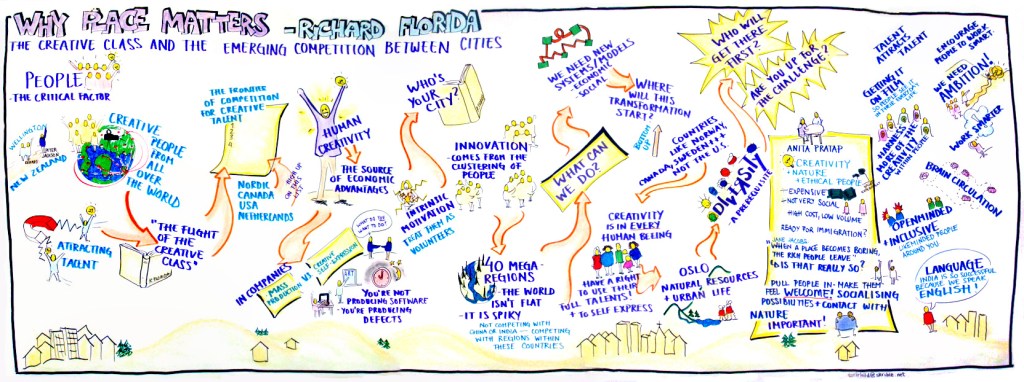 WHY PLACE MATTERS - RICHARD FLORIDA
THE CREATIVE CLASS AND THE EMERGING COMPETITION BETWEEN CITIES
PEOPLE
- THE CRITICAL FACTOR
WELLINGTON
NEW ZEALAND
CREATIVE
PEOPLE
FROM
ALL
OVER
THE WORLD
ATTRACTING
TALENT
"THE FLIGHT
OF THE
CREATIVE
CLASS"
R. FLORIDA
THE PROMISE
OF COMPETITION
FOR CREATIVE
TALENT
NORDIC
CANADA
USA
NETHERLANDS
HUMAN
CREATIVITY
- THE SOURCE
OF ECONOMIC
ADVANTAGES
IN COMPANIES
MASS
PRODUCTION VS
CREATIVE
SELF-EXPRESSION
WHAT TO
DO?
YOU'RE NOT
PRODUCING SOFTWARE
- YOU'RE PRODUCING
DEFECTS
WHO'S
YOUR
CITY?
INTRINSIC
MOTIVATION
TREAT THEM AS
VOLUNTEERS
INNOVATION
- COMES FROM THE
CLUSTERING OF
PEOPLE
10 MEGA-
REGIONS
- THE WORLD
ISN'T FLAT
- IT IS SPIKY
NOT COMPETING WITH
CHINA OR INDIA -- COMPETING
WITH REGIONS WITHIN
THESE COUNTRIES
WE NEED NEW
SYSTEMS/MODELS
- ECONOMIC
- SOCIAL
WHAT CAN
WE DO?
CREATIVITY
IS IN EVERY
HUMAN BEING
- HAVE A RIGHT
TO USE THEIR
FULL TALENTS!
+ TO SELF EXPRESS
WHERE
WILL THIS
TRANSFORMATION
START?
BOTTOM
UP
COUNTRIES
LIKE NORWAY,
CANADA, SWEDEN ++
NOT THE U.S.
WHO WILL
GET THERE
FIRST?
ARE YOU UP FOR
THE CHALLENGE?
DIVERSITY
A PREREQUISITE
OSLO
NATURAL RESOURCES
+ URBAN LIFE
ANITA PRATAP
CREATIVITY
+ NATURE
+ ETHICAL PEOPLE
- EXPENSIVE
- NOT VERY SOCIAL
- HIGH COST, LOW VOLUME
READY FOR IMMIGRATION?
JANE JACOBS:
"WHEN A PLACE BECOMES BORING,
THE RICH PEOPLE LEAVE"
IS THAT REALLY SO?
PULL PEOPLE IN - MAKE THEM
FEEL WELCOME! SOCIALISING
POSSIBILITIES + CONTACT WITH
NATURE
IMPORTANT!
TALENT
ATTRACTS
TALENT
GETTING IT
ON FILM
HARNESS
THE
CREATIVE
PEOPLE
ENCOURAGE
PEOPLE TO WORK
SMART
WE NEED
AMBITION!
WORK SMARTER
BRAIN CIRCULATION
OPENMINDED
+
INCLUSIVE
LIKEMINDED PEOPLE
AROUND YOU
LANGUAGE
INDIA IS SO SUCCESSFUL
BECAUSE WE SPEAK
ENGLISH!